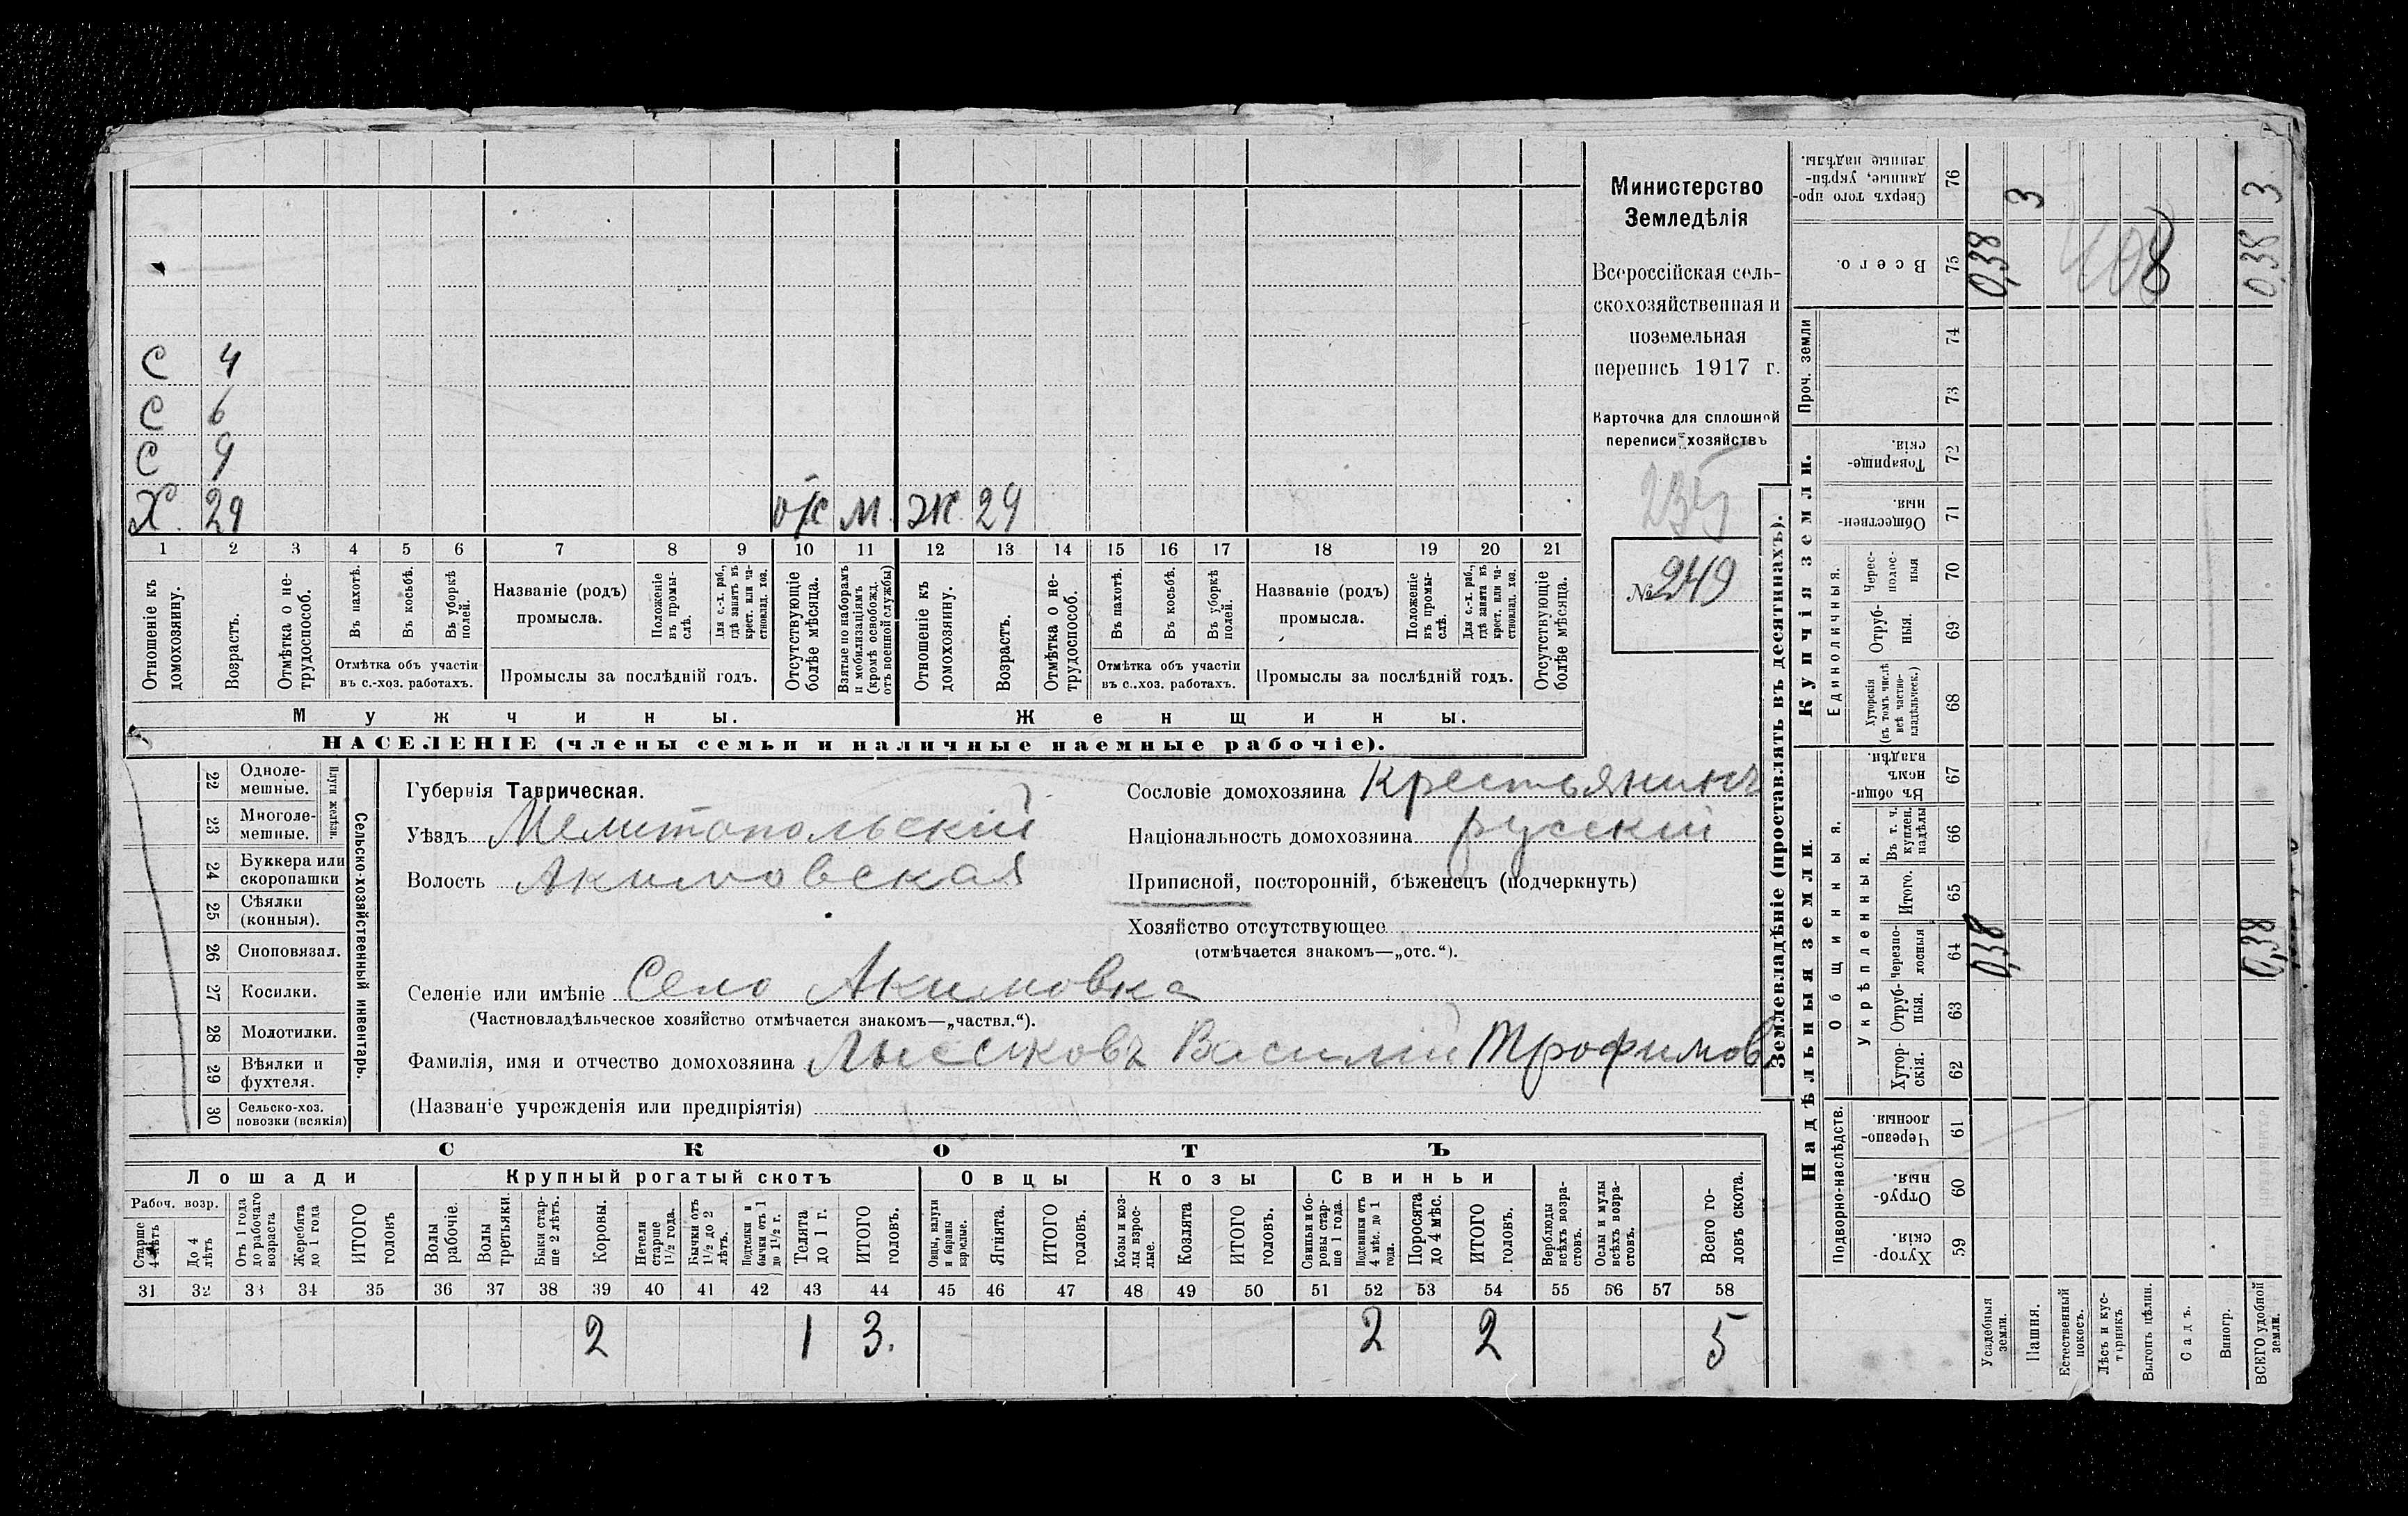 Министерство
Земледѣлія
Всероссійская сель-
скохозяйственная и
поземельная
перепись 1917 г.
Карточка для сплошной
переписи хозяйствъ
235
№ 249
С 4
С 6
С 9
Х. 29 о/с м ж 29
1 2 3 4 5 6 7 8 9 10 11 12 13 14 15 16 17 18 19 20 21
Отношеніе къ домохозяину.
Возрастъ.
Отмѣтка о не-трудоспособ.
Въ пахотѣ.
Въ косьбѣ.
Въ уборкѣ полей.
Отмѣтка объ участіи въ с.-хоз. работахъ.
Названіе (родъ) промысла.
Положеніе въ промыслѣ.
Для с.-х. раб., гдѣ занятъ въ крест. или частновлад. хоз.
Промыслы за послѣдній годъ.
Отсутствующіе болѣе мѣсяца.
Взятые по наборамъ и мобилизаціямъ (кромѣ освобожд. отъ военной службы)
Отношеніе къ домохозяину.
Возрастъ.
Отмѣтка о не-трудоспособ.
Въ пахотѣ.
Въ косьбѣ.
Въ уборкѣ полей.
Отмѣтка объ участіи въ с.-хоз. работахъ.
Названіе (родъ) промысла.
Положеніе въ промыслѣ.
Для с.-х. раб., гдѣ занятъ въ крест. или частновлад. хоз.
Промыслы за послѣдній годъ.
Отсутствующіе болѣе мѣсяца.
Мужчины. Женщины.
НАСЕЛЕНІЕ (члены семьи и наличные наемные рабочіе).
22 Одноле-мешные.
23 Многоле-мешные.
Плуги желѣзн.
24 Буккера или скоропашки
25 Сѣялки (конныя).
26 Сноповязал.
27 Косилки.
28 Молотилки.
29 Вѣялки и фухтеля.
30 Сельско-хоз. повозки (всякія)
Сельско-хозяйственный инвентарь.
Губернія Таврическая.
Уѣздъ Мелитопольскій
Волость Акимовская
Сословіе домохозяина Крестьянинъ
Національность домохозяина русскій
Приписной, посторонній, бѣженецъ (подчеркнуть)
Хозяйство отсутствующее
(отмѣчается знакомъ—„отс.“).
Селеніе или имѣніе Село Акимовка
(Частновладѣльческое хозяйство отмѣчается знакомъ—„частвл.“).
Фамилія, имя и отчество домохозяина Василій Трофимов
(Названіе учрежденія или предпріятія)
СКОТЪ
Лошади Крупный рогатый скотъ Овцы Козы Свиньи
Рабоч. возр.
Старше 4 лѣтъ
До 4 лѣтъ
Отъ 1 года до рабочаго возраста
Жеребята до 1 года
ИТОГО головъ
Волы рабочіе.
Волы третьяки.
Быки стар-ше 2 лѣтъ.
Коровы.
Нетели старше 1 1/2 года.
Бычки отъ 1 1/2 до 2 лѣтъ.
Подтелки и бычки отъ 1 до 1 1/2 г.
Телята до 1 г.
ИТОГО головъ.
Овцы, валухи и бараны взрослые.
Ягнята.
ИТОГО головъ.
Козы и коз-лы взрос-лые.
Козлята
ИТОГО головъ.
Свиньи и бо-ровы стар-ше 1 года.
Подсвинки отъ 4 мѣс. до 1 года.
Поросята до 4 мѣс.
ИТОГО головъ.
Верблюды всѣхъ возра-стовъ.
Ослы и мулы всѣхъ возра-стовъ.
Всего го-ловъ скота.
31 32 33 34 35 36 37 38 39 40 41 42 43 44 45 46 47 48 49 50 51 52 53 54 55 56 57 58
2 1 3. 2 2 5
Землевладѣніе (проставлять въ десятинахъ).
Купчія земли.
Сверхъ того про-данные, укрѣп-ленные надѣлы. 76
Всего. 75
Проч. земли 74 73
Товарище-скія. 72
Обществен-ныя. 71
Единоличныя.
Черес-полос-ныя 70
Отруб-ныя. 69
Хуторскія (въ томъ числѣ всѣ частно-владѣльческ.) 68
Надѣльныя земли.
Общинныя.
Въ общи-номъ владѣн. 67
Укрѣпленныя.
Въ т. ч. куплен. надѣлы 66
Итого. 65
Черезпо-лосныя 64
Отруб-ныя. 63
Хутор-скія. 62
Подворно-наслѣдств.
Черезпо-лосныя 61
Отруб-ныя. 60
Хутор-скія. 59
Усадебныя земли. 0,38 0,38
Пашня. 3
Естественный покосъ.
Лѣсъ и кус-тарникъ
Выгонъ цѣлин.
Садъ.
Виногр.
ВСЕГО удобной земли. 0,38 0,38 3